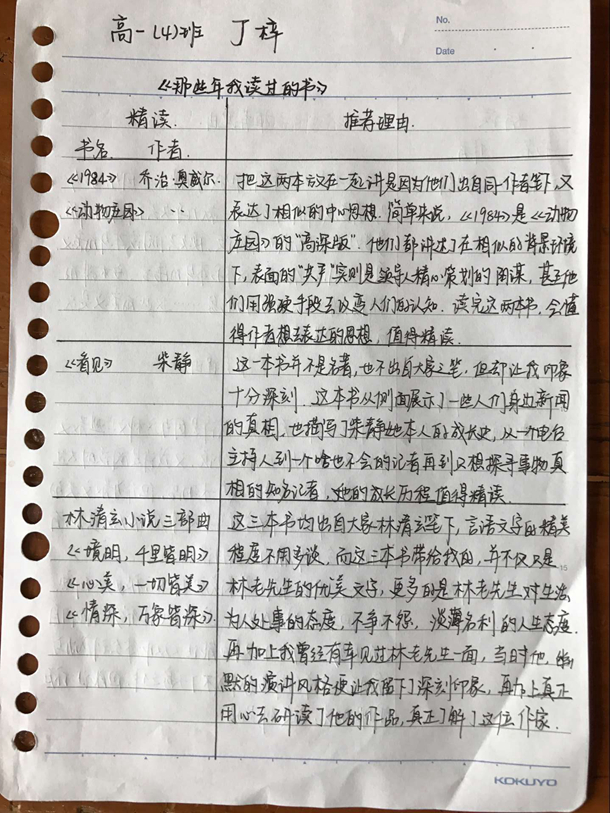 No.
Date
高一(4)班 丁梓
《那些年我读过的书》
精读. 推荐理由.
书名. 作者.
《1984》 乔治·奥威尔. 把这两本放在一起讲是因为他们出自同一作者笔下,又
《动物庄园》 .. 表达了相似的中心思想. 简单来说,《1984》是《动物
庄园》的"高深版". 他们都讲述了在相似的背景环境
下,表面的"共产"实则是领导人精心策划的阴谋,甚至他
们用强硬手段去改变人们的认知. 读完这两本书,会懂
得作者想去表达的思想,值得精读.
《看见》 柴静 这一本书并不是名著,也不出自大家之笔,但却让我印象
十分深刻. 这本书从侧面展示了一些人们身边新闻
的真相,也描写了柴静她本人的成长史,从一个电台
主持人到一个啥也不会的记者再到只想探寻事物真
相的知名记者,她的成长历程值得精读.
林清玄小说三部曲 这三本书均出自大家林清玄笔下,言语文字的精美
《境明,千里皆明》 程度不用多谈,而这三本书带给我的,并不仅只是
《心美,一切皆美》 林老先生的优美文字,更多的是林老先生对生活
《情深,万象皆深》 为人处事的态度,不争不怨,淡薄名利的人生态度.
再加上我曾经有幸见过林老先生一面,当时他,幽
默的演讲风格便让我留下了深刻印象,再加上真正
用心去研读了他的作品,真正了解了这位作家.
KOKUYO